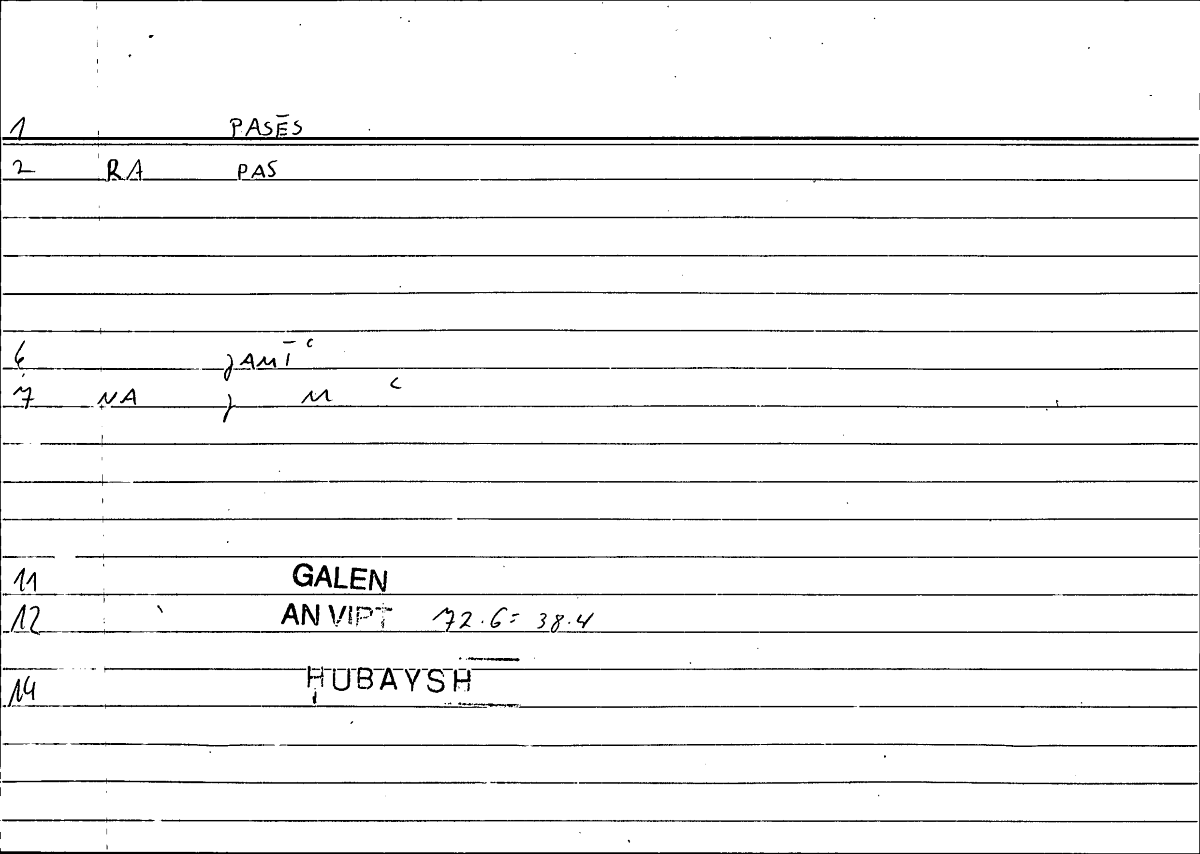 1 PASĒS
2 RA PAS
6 jAMĪ ͨ
7 NA j M ͨ
11 GALEN
12 AN VIPT 72.6 = 38.4
14 HUBAYSH